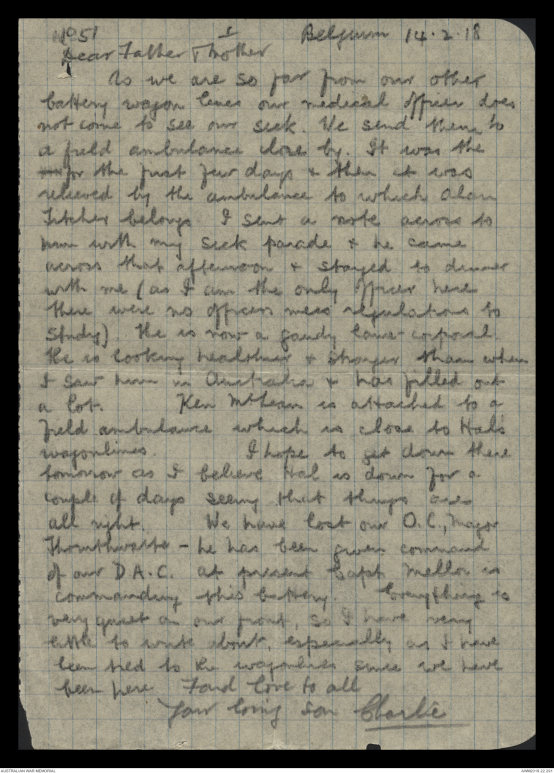 No 51 1 Belgium 14.2.18
Dear Father & Mother
As we are so far from our other
battery wagon lines our medical officer does
not come to see our sick. We send them to
a field ambulance close by. It was the
for the first few days & then it was
relieved by the ambulance to which Alan
Fitcher belongs. I sent a note across to
him with my sick parade & he came
across that afternoon & stayed to dinner
with me (as I am the only officer here
there were no officers mess regulations to
study). He is now a gaudy lance-corporal.
He is looking healthier & stronger than when
I saw him in Australia & has filled out
a lot. Ken McLean is attached to a
field ambulance which is close to Hal's
wagonlines. I hope to get down there
tomorrow as I believe Hal is down for a
couple of days seeing that things are
all right. We have lost our O.C., Major
Thornthwaite - he has been given command
of our D.A.C. at present Capt Mellor is
commanding this battery. Everything is
very quiet on our front, so I have very
little to write about, especially as I have
been tied to the wagonlines since we have
been here. Fond love to all
Your loving son Charlie
AUSTRALIAN WAR MEMORIAL